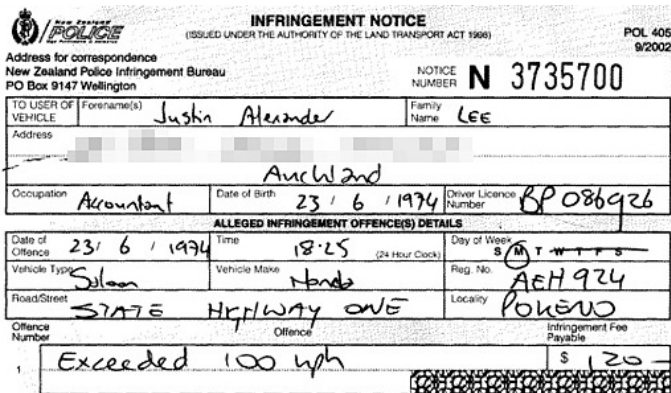 New Zealand
POLICE
INFRINGEMENT NOTICE
(ISSUED UNDER THE AUTHORITY OF THE LAND TRANSPORT ACT 1998)
POL 405
9/2002
Address for correspondence
New Zealand Police Infringement Bureau
PO Box 9147 Wellington
NOTICE NUMBER N 3735700
TO USER OF VEHICLE Forename(s) Justin Alexander Family Name LEE
Address
Auckland
Occupation Accountant Date of Birth 23 / 6 / 1974 Driver Licence Number BP 086926
ALLEGED INFRINGEMENT OFFENCE(S) DETAILS
Date of Offence 23 / 6 / 1974 Time 18.25 (24 Hour Clock) Day of Week S M T W T F S
Vehicle Type Saloon Vehicle Make Honda Reg. No. AEH 924
Road/Street STATE HIGHWAY ONE Locality POKENO
Offence Number Offence Infringement Fee Payable
1 Exceeded 100 kph $ 120-